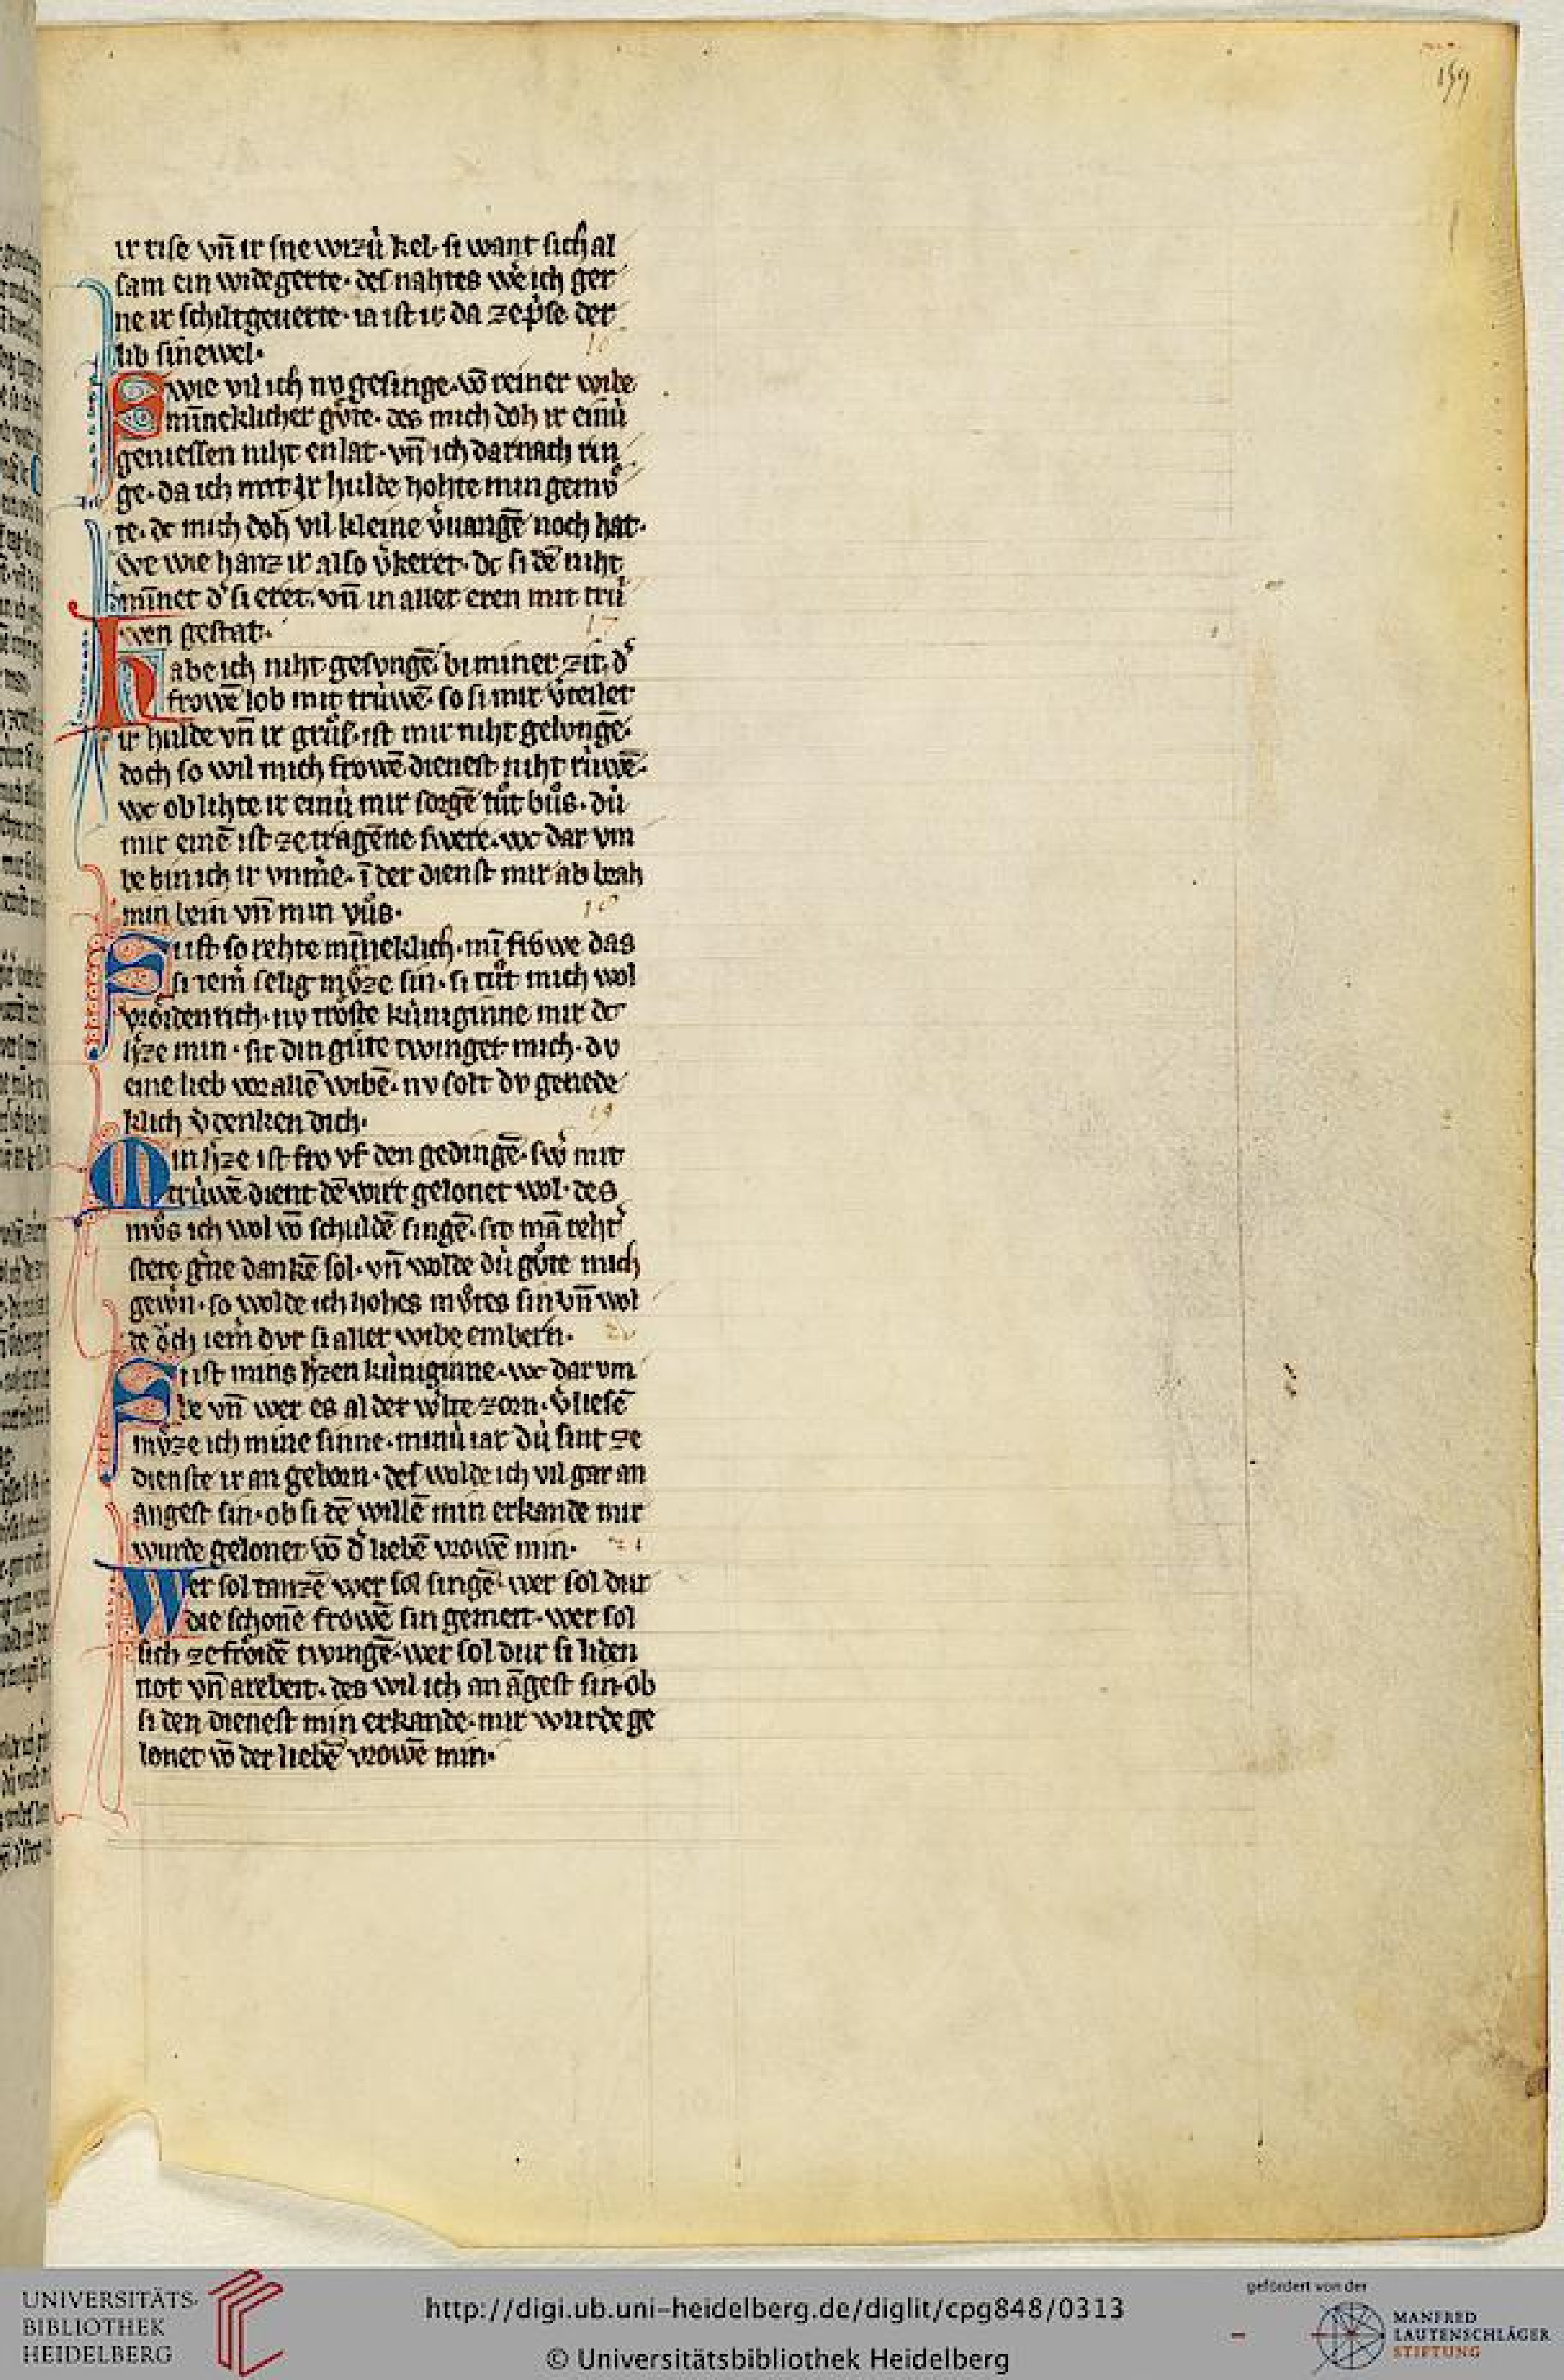 159
ir rise vn̄ ir sne wizú kel· si want sich al
sam ein wide gerte· des nahtes we͛ ich ger
ne ir schiltgeuerte· ia ist ir da ze p͛se der
lib sinewel·
16
Swie vil ich nv gesinge· vō reiner wibe
mīneklicher gvͤte· des mich doh ir einú
geniessen niht enlat· vn̄ ich darnach rin
ge· da ich mit ir hulde hohte min gemvͤ
te· dc mich doh vil kleine v͛uangē noch hat·
we wie hanz ir also v͛keret· dc si dē niht
mīnet d͛ si eret· vn̄ in aller eren mit trú
wen gestat·
17
Habe ich niht gesvngē bi miner zit· d͛
frowē lob mit trúwē· so si mir v͛teilet
ir hulde vn̄ ir grůs· ist mir niht gelvngē·
doch so wil mich frowē dienest niht rúwē·
wc ob lihte ir einú mir sorgē tůt bůs· dú
mir einē ist ze tragēne swere· wc dar vm
be bin ich ir vnme͛· ī der dienst mir ab brah
min bein vn̄ min vůs·
18
Si ist so rehte mīneklich· mī frowe das
si iem͛ selig mvͤze sin· si tůt mich wol
vroͤidenrich· nv troͤste kúniginne mir dc
h͛ze min· sit din guͤte twinget mich· dv
eine lieb vor allē wibē· nv solt dv genede
klich v͛denken dich·
19
Min h͛ze ist fro vf den gedingē· sw͛ mit
trúwē dient dē wirt gelonet wol· des
mvͦs ich wol vō schuldē singē· sit mā reht͛
stete g͛ne dankē sol· vn̄ wolde dú gvͤte mich
gew͛n· so wolde ich hohes mvͦtes sin vn̄ wol
de oͮch iem͛ dvr si aller wibe embern·
20
Si ist mins h͛zen kúniginne· wc dar vm
be vn̄ wer es al der w͛lte zorn· v͛liesē
mvͤze ich mine sinne· minú iar dú sint ze
dienste ir an geborn· des wolde ich vil gar an
angest sin· ob si dē willē min erkande mir
wurde gelonet vō d͛ liebē vrowē min·
21
Wer sol tanzē wer sol singē· wer sol dur
die schonē frowē sin gemeit· wer sol
sich ze froͤidē twingē· wer sol dur si liden
not vn̄ arebeit· des wil ich an āgest sin· ob
si den dienest min erkande· mir wurde ge
lonet vō der liebē vrowē min·
UNIVERSITÄTS-
BIBLIOTHEK
HEIDELBERG
http://digi.ub.uni-heidelberg.de/diglit/cpg848/0313
© Universitätsbibliothek Heidelberg
gefördert von der
MANFRED
LAUTENSCHLÄGER
STIFTUNG